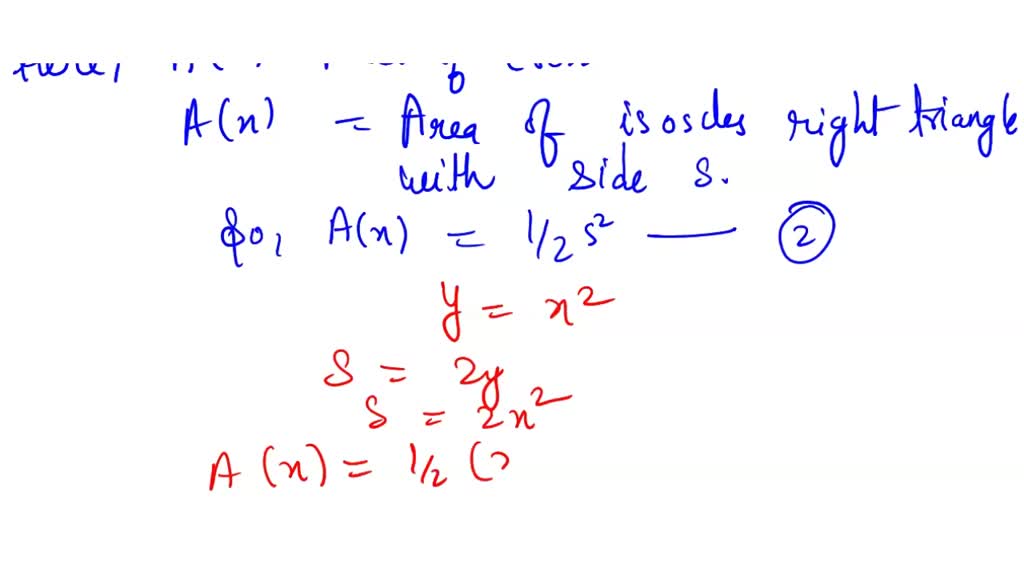 A(x) = Area of isosdes right triangle
with side s.
So, A(x) = 1/2 s² —— ②
y = x²
S = 2y
s = 2x²
A (x) = 1/2 (2